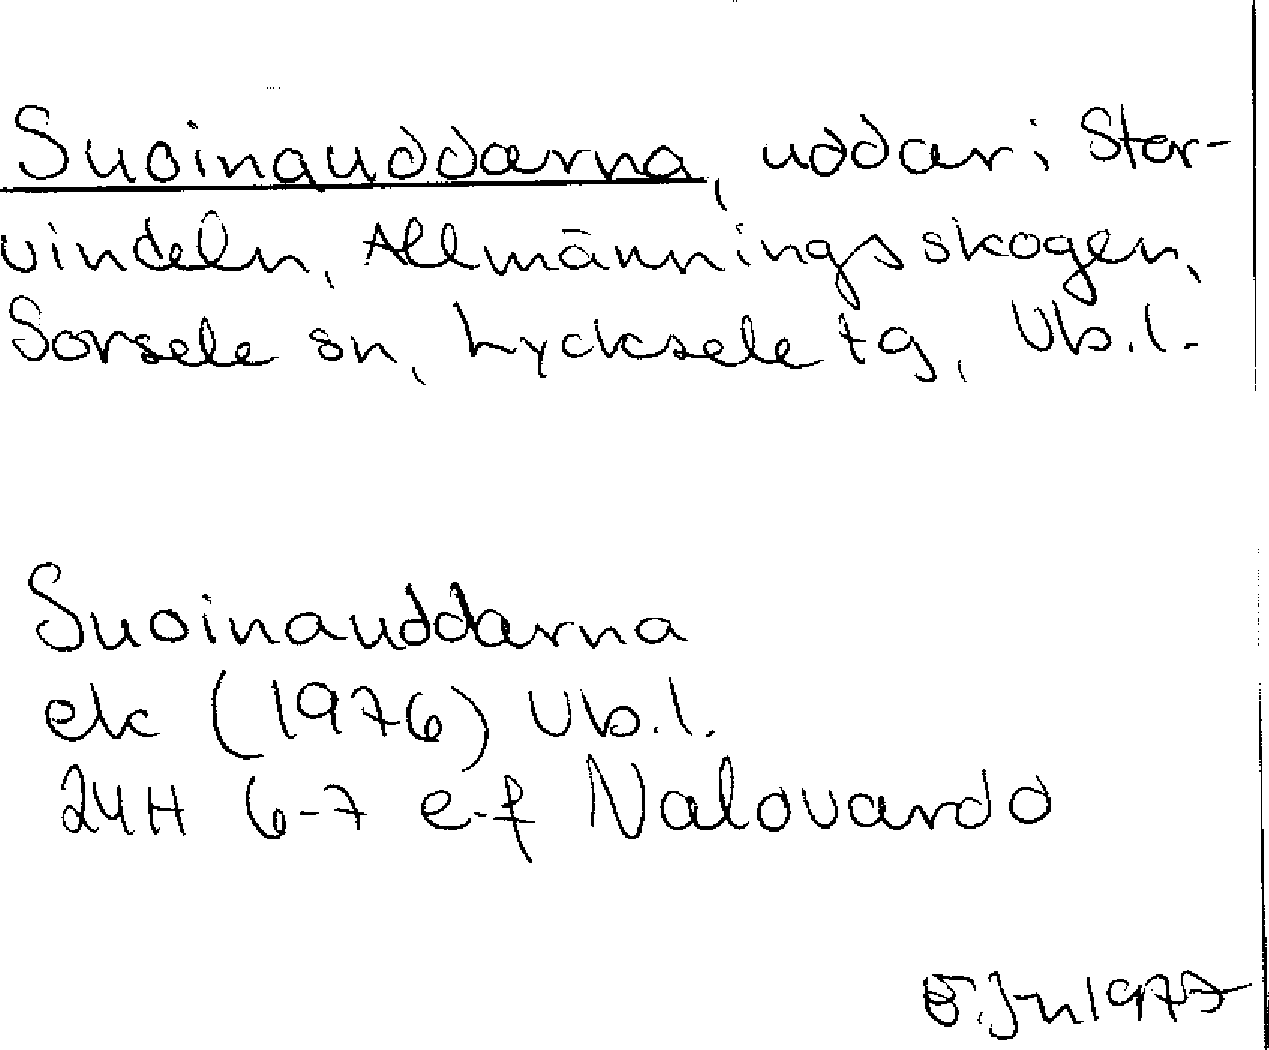 Suoinauddarna, uddar i Stor-
vindeln, Allmänningsskogen,
Sorsele sn, Lycksele tg, Vb.l.
Suoinauddarna
ek (1976) Vb.l.
24H 6-7 e-f Nalovardo
1977